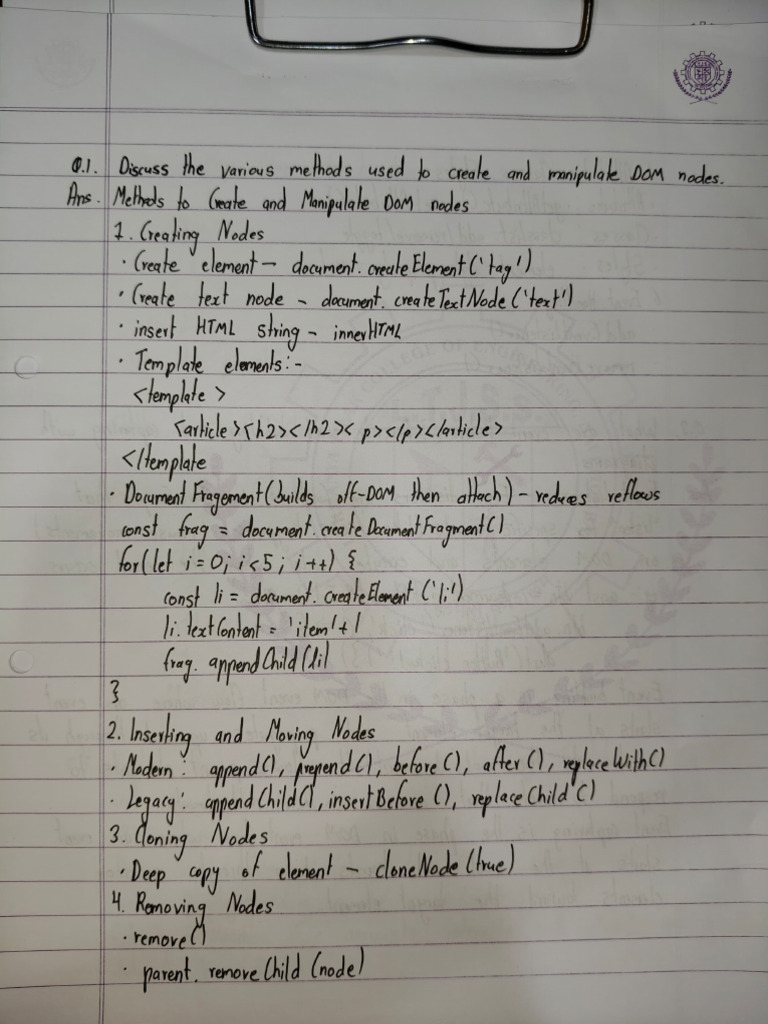 Q.1. Discuss the various methods used to create and manipulate DOM nodes.
Ans. Methods to Create and Manipulate DOM nodes
1. Creating Nodes
· Create element – document.createElement('tag')
· Create text node – document.createTextNode('text')
· insert HTML string – innerHTML
· Template elements:-
<template>
<article><h2></h2><p></p></article>
</template
· Document Fragement (builds off-DOM then attach) – reduces reflows
const frag = document.createDocumentFragment()
for(let i=0; i<5; i++) {
const li = document.createElement('li')
li.textContent = 'item'+1
frag.appendChild(li)
}
2. Inserting and Moving Nodes
· Modern: append(), prepend(), before(), after(), replaceWith()
· Legacy: appendChild(), insertBefore(), replaceChild()
3. Cloning Nodes
· Deep copy of element – cloneNode(true)
4. Removing Nodes
· remove()
· parent.removeChild(node)